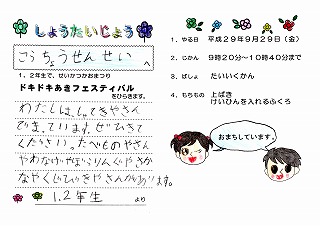 しょうたいじょう
こうちょうせんせい へ
1、2年生で、せいかつかおまつり
ドキドキあきフェスティバル
をひらきます。
わたしは、してきやさん
でまっています。ぜひきて
ください。たべものやさん
やわなげやぼうりんぐやさか
なやくじびきやさんがあります。
1.2年生 より
1、やる日 平成29年9月29日（金）
2、じかん 9時20分～10時40分まで
3、ばしょ たいいくかん
4、もちもの 上ばき
けいひんを入れるふくろ
おまちしています。